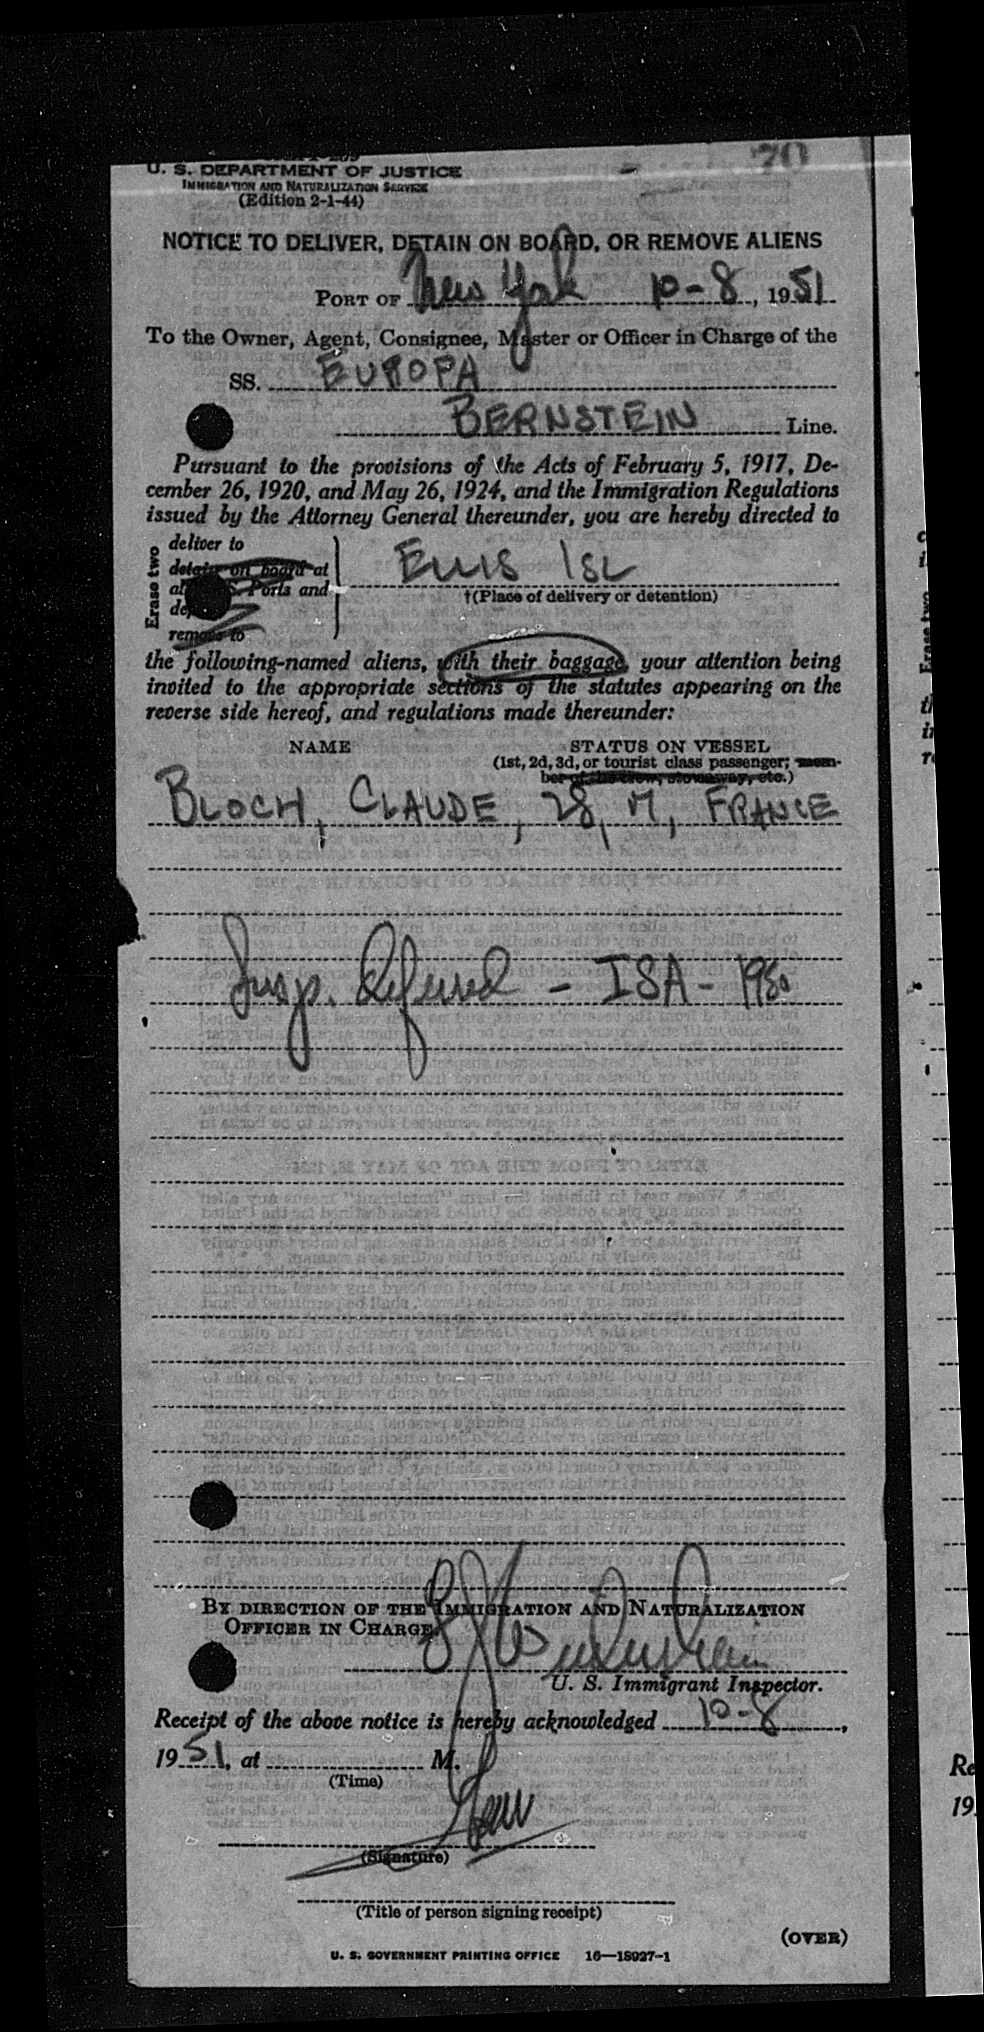 70
U. S. DEPARTMENT OF JUSTICE
IMMIGRATION AND NATURALIZATION SERVICE
(Edition 2-1-44)
NOTICE TO DELIVER, DETAIN ON BOARD, OR REMOVE ALIENS
PORT OF New York 10-8, 1951
To the Owner, Agent, Consignee, Master or Officer in Charge of the
SS. EUROPA
BERNSTEIN Line.
Pursuant to the provisions of the Acts of February 5, 1917, De-
cember 26, 1920, and May 26, 1924, and the Immigration Regulations
issued by the Attorney General thereunder, you are hereby directed to
Erase two
deliver to
detain on board at
all U. S. Ports and
remove to
ELLIS ISL
†(Place of delivery or detention)
the following-named aliens, with their baggage, your attention being
invited to the appropriate sections of the statutes appearing on the
reverse side hereof, and regulations made thereunder:
NAME STATUS ON VESSEL
(1st, 2d, 3d, or tourist class passenger; mem-
ber of the crew, stowaway, etc.)
BLOCH, CLAUDE, 28, M, FRANCE
Insp. Deferred - ISA - 1950
BY DIRECTION OF THE IMMIGRATION AND NATURALIZATION
OFFICER IN CHARGE
U. S. Immigrant Inspector.
Receipt of the above notice is hereby acknowledged 10-8,
1951, at M.
(Time)
(Signature)
(Title of person signing receipt)
(OVER)
U. S. GOVERNMENT PRINTING OFFICE 16—18927-1
Re
19